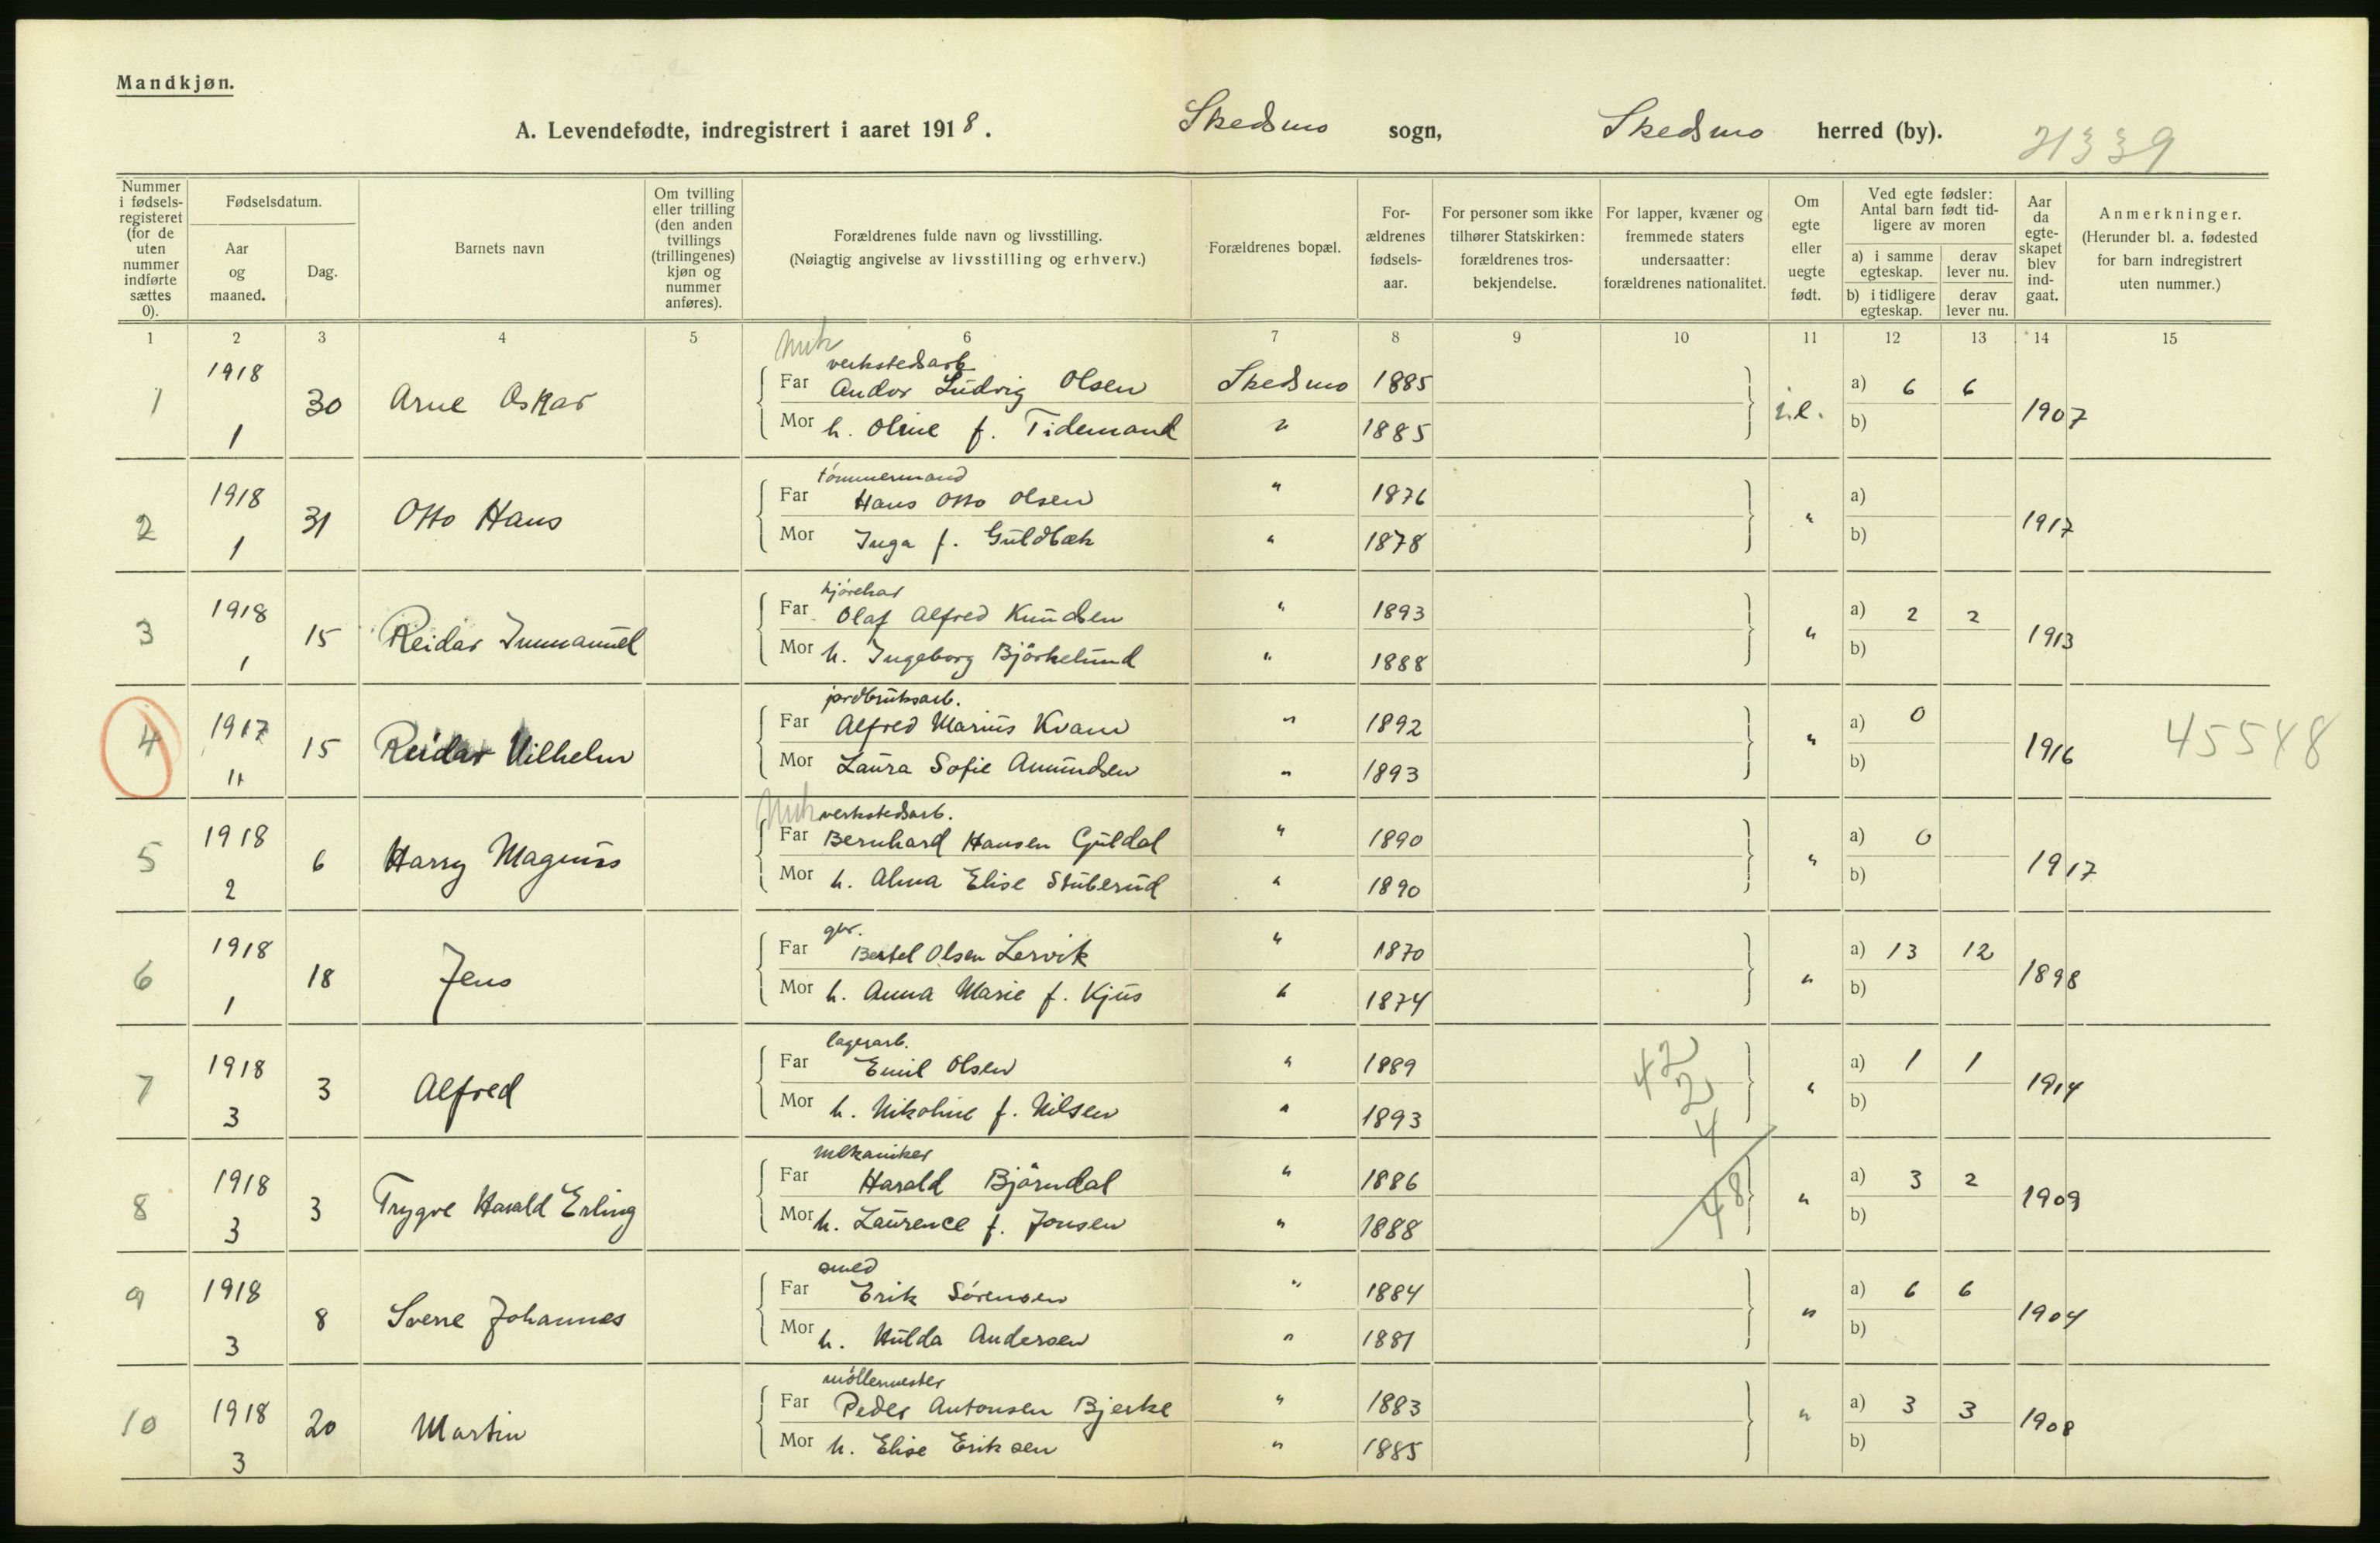 Mandkjøn.
A. Levendefødte, indregistrert i aaret 1918. Skedsmo sogn, Skedsmo herred (by). 21339
Nummer i fødsels-registeret (for de uten nummer indførte sættes 0).
Fødselsdatum.
Aar og maaned.
Dag.
Barnets navn
Om tvilling eller trilling (den anden tvillings (trillingenes) kjøn og nummer anføres).
Forældrenes fulde navn og livsstilling.
(Nøiagtig angivelse av livsstilling og erhverv.)
Forældrenes bopæl.
For-ældrenes fødsels-aar.
For personer som ikke tilhører Statskirken: forældrenes tros-bekjendelse.
For lapper, kvæner og fremmede staters undersaatter: forældrenes nationalitet.
Om egte eller uegte født.
Ved egte fødsler: Antal barn født tid-ligere av moren
a) i samme egteskap.
derav lever nu.
b) i tidligere egteskap.
derav lever nu.
Aar da egte-skapet blev ind-gaat.
Anmerkninger.
(Herunder bl. a. fødested for barn indregistrert uten nummer.)
1 2 3 4 5 6 7 8 9 10 11 12 13 14 15
verkstedsarb.
1 1918 30 Arne Oskar Far Andor Ludvig Olsen Skedsmo 1885 i.e. a) 6 6 1907
1 Mor h. Oline f. Tidemand " 1885 b)
tømmermand
2 1918 31 Otto Hans Far Hans Otto Olsen " 1876 " a) 1917
1 Mor Inga f. Guldbæk " 1878 b)
kjørekar
3 1918 15 Reidar Immanuel Far Olaf Alfred Knudsen " 1893 " a) 2 2 1913
1 Mor h. Ingeborg Bjørkelund " 1888 b)
jordbruksarb.
4 1917 15 Reidar Vilhelm Far Alfred Marius Kvam " 1892 " a) 0 1916 45548
11 Mor Laura Sofie Amundsen " 1893 b)
verkstedsarb.
5 1918 6 Harry Magnus Far Bernhard Hansen Guldal " 1890 " a) 0 1917
2 Mor h. Alma Elise Stuberud " 1890 b)
gbr.
6 1918 18 Jens Far Bertel Olsen Lervik " 1870 " a) 13 12 1898
1 Mor h. Anna Marie f. Kjus " 1874 b)
lagerarb.
7 1918 3 Alfred Far Emil Olsen " 1889 42 " a) 1 1 1914
3 Mor h. Nikoline f. Nilsen " 1893 2 b)
4
mekaniker
8 1918 3 Trygve Harald Erling Far Harald Bjørndal " 1886 48 " a) 3 2 1909
3 Mor h. Laurence f. Jonsen " 1888 b)
smed
9 1918 8 Sverre Johannes Far Erik Sørensen " 1884 " a) 6 6 1904
3 Mor h. Hulda Andersen " 1881 b)
møllemester
10 1918 20 Martin Far Peder Antonsen Bjerke " 1883 " a) 3 3 1908
3 Mor h. Elise Eriksen " 1885 b)